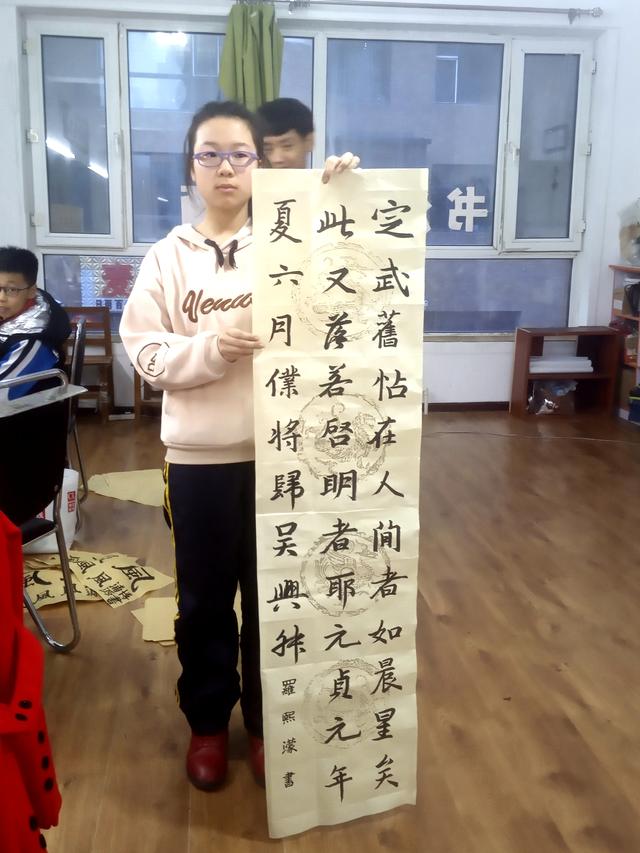 定武舊帖在人間者如晨星矣
此又落若啓明者耶元貞元年
夏六月僕將歸吴興
羅熙濛書
風
風